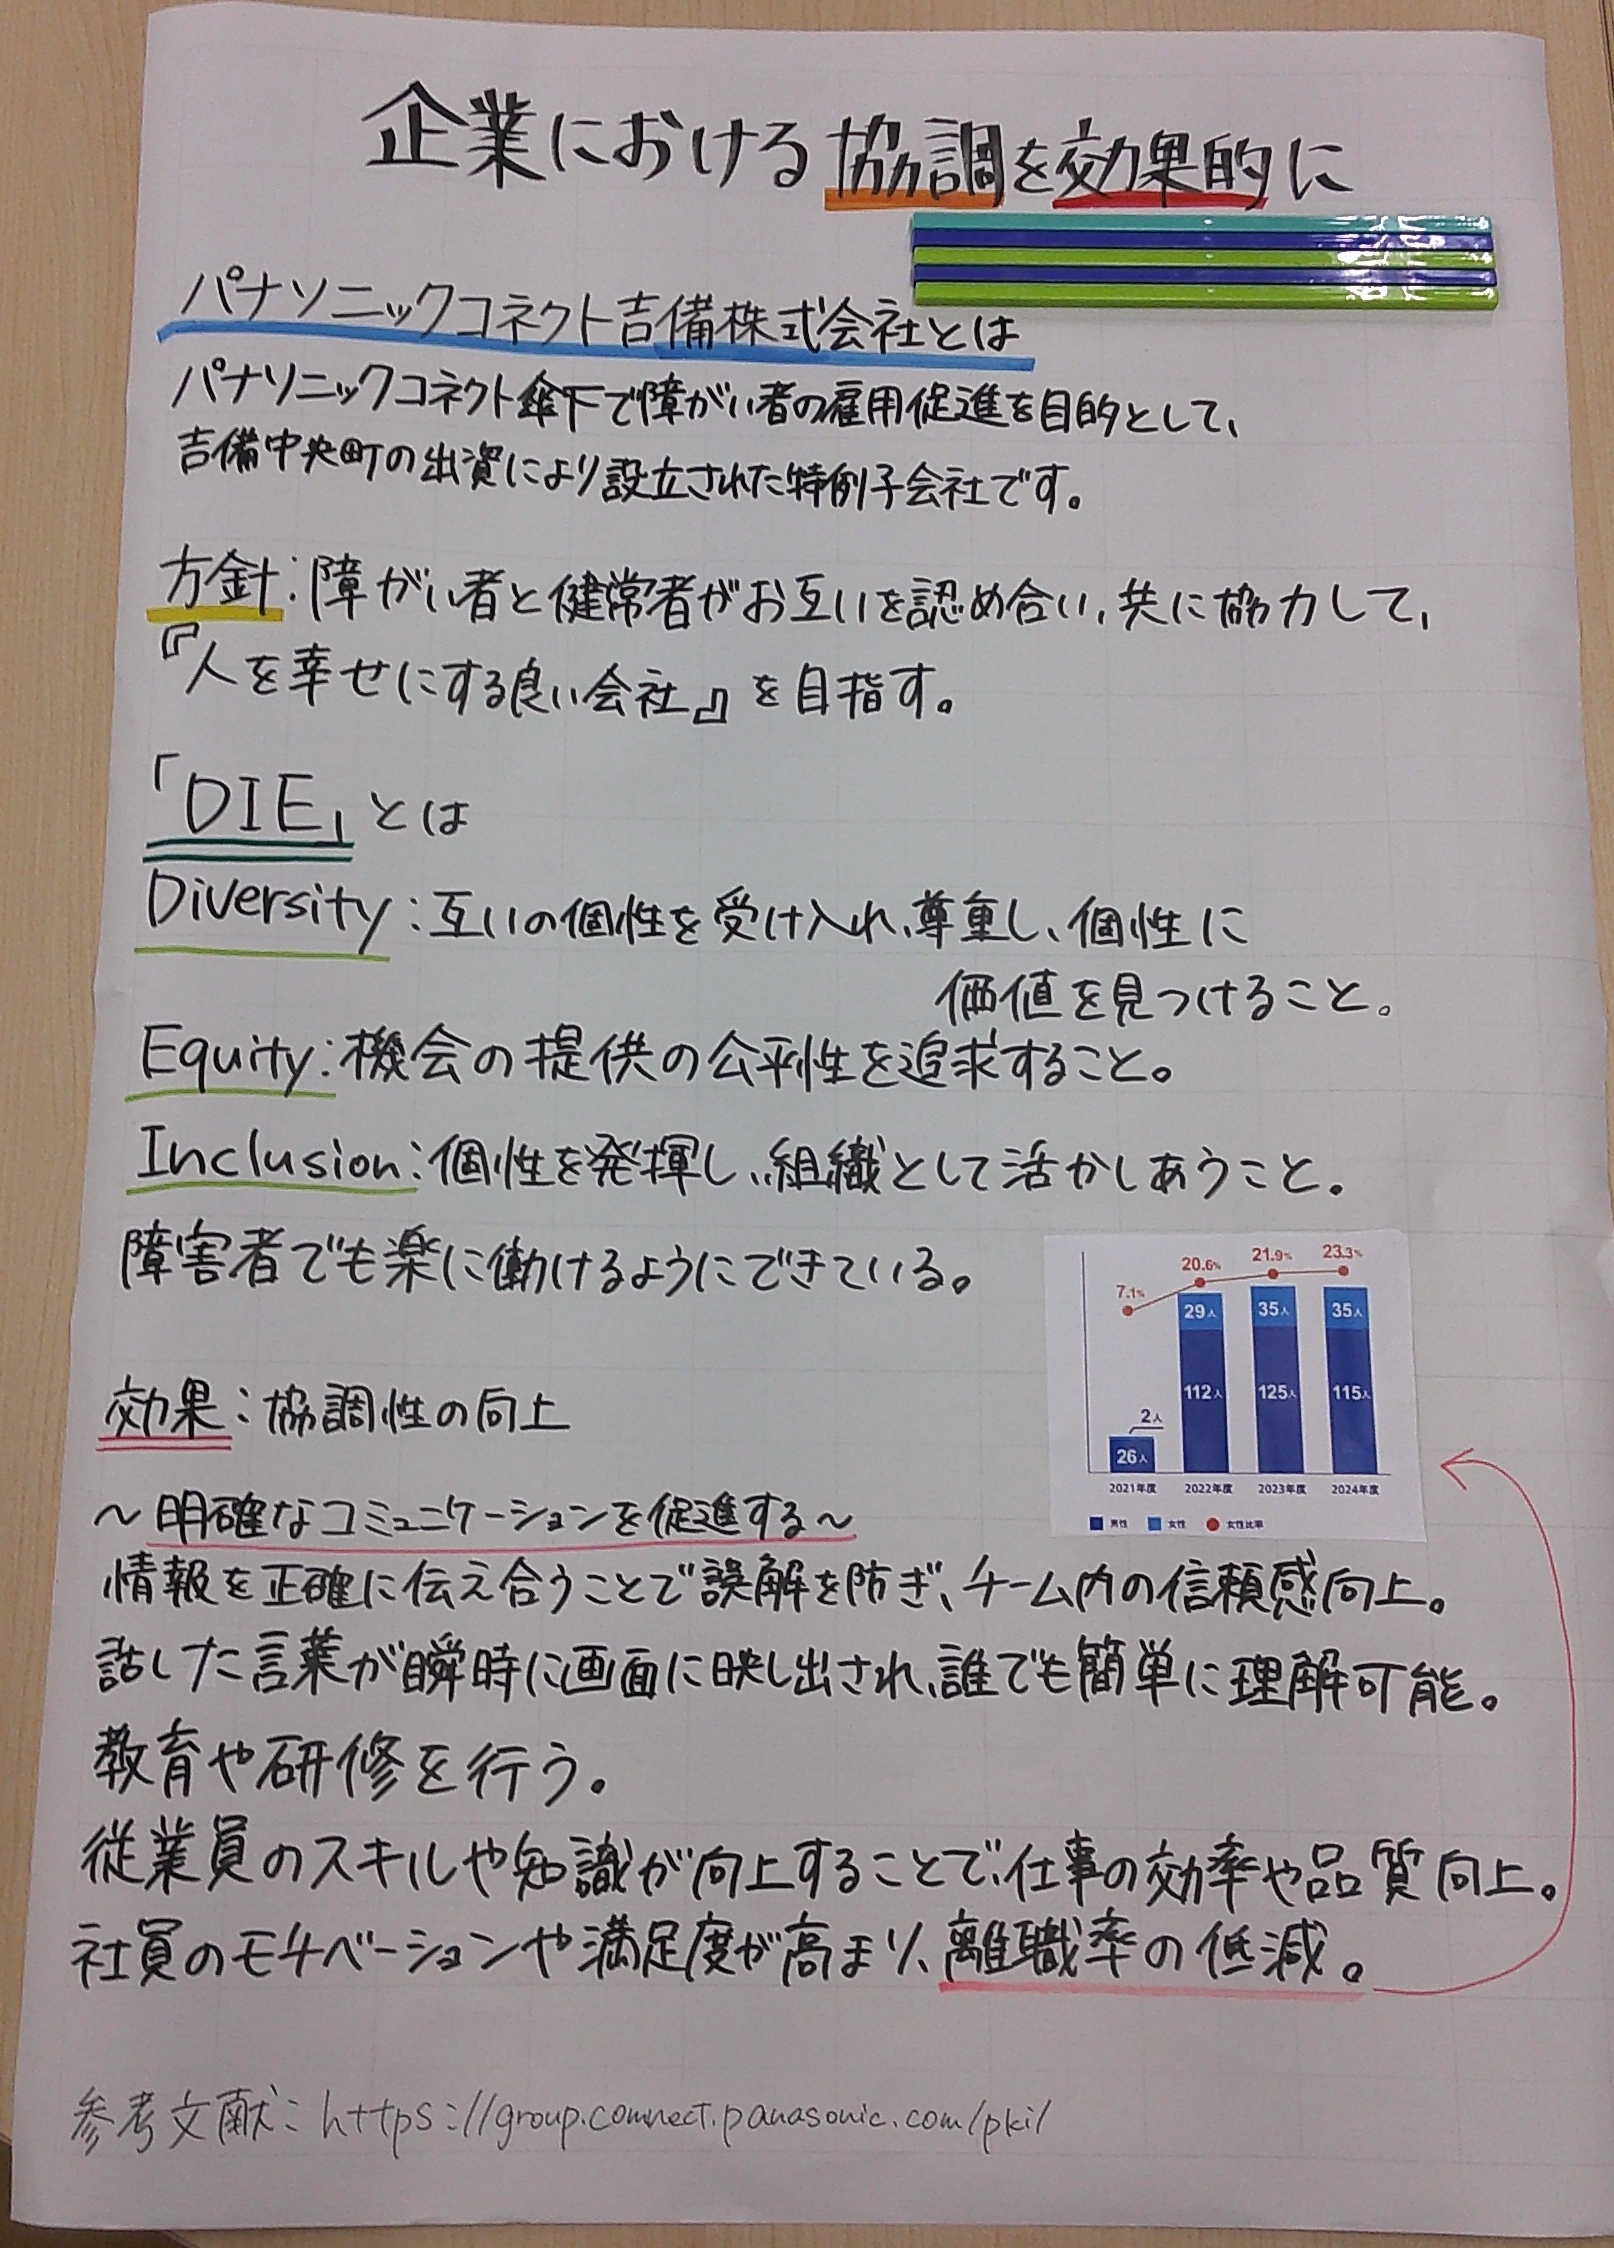 企業における協調を効果的に
パナソニックコネクト吉備株式会社とは
パナソニックコネクト傘下で障がい者の雇用促進を目的として、
吉備中央町の出資により設立された特例子会社です。
方針:障がい者と健常者がお互いを認め合い、共に協力して、
『人を幸せにする良い会社』を目指す。
「DIE」とは
Diversity:互いの個性を受け入れ、尊重し、個性に
価値を見つけること。
Equity:機会の提供の公平性を追求すること。
Inclusion:個性を発揮し、組織として活かしあうこと。
障害者でも楽に働けるようにできている。
7.1% 20.6% 21.9% 23.3%
29人 35人 35人
112人 125人 115人
2人
26人
2021年度 2022年度 2023年度 2024年度
男性 女性 女性比率
効果:協調性の向上
~明確なコミュニケーションを促進する~
情報を正確に伝え合うことで誤解を防ぎ、チーム内の信頼感向上。
話した言葉が瞬時に画面に映し出され、誰でも簡単に理解可能。
教育や研修を行う。
従業員のスキルや知識が向上することで、仕事の効率や品質向上。
社員のモチベーションや満足度が高まり、離職率の低減。
参考文献:https://group.connect.panasonic.com/pki/